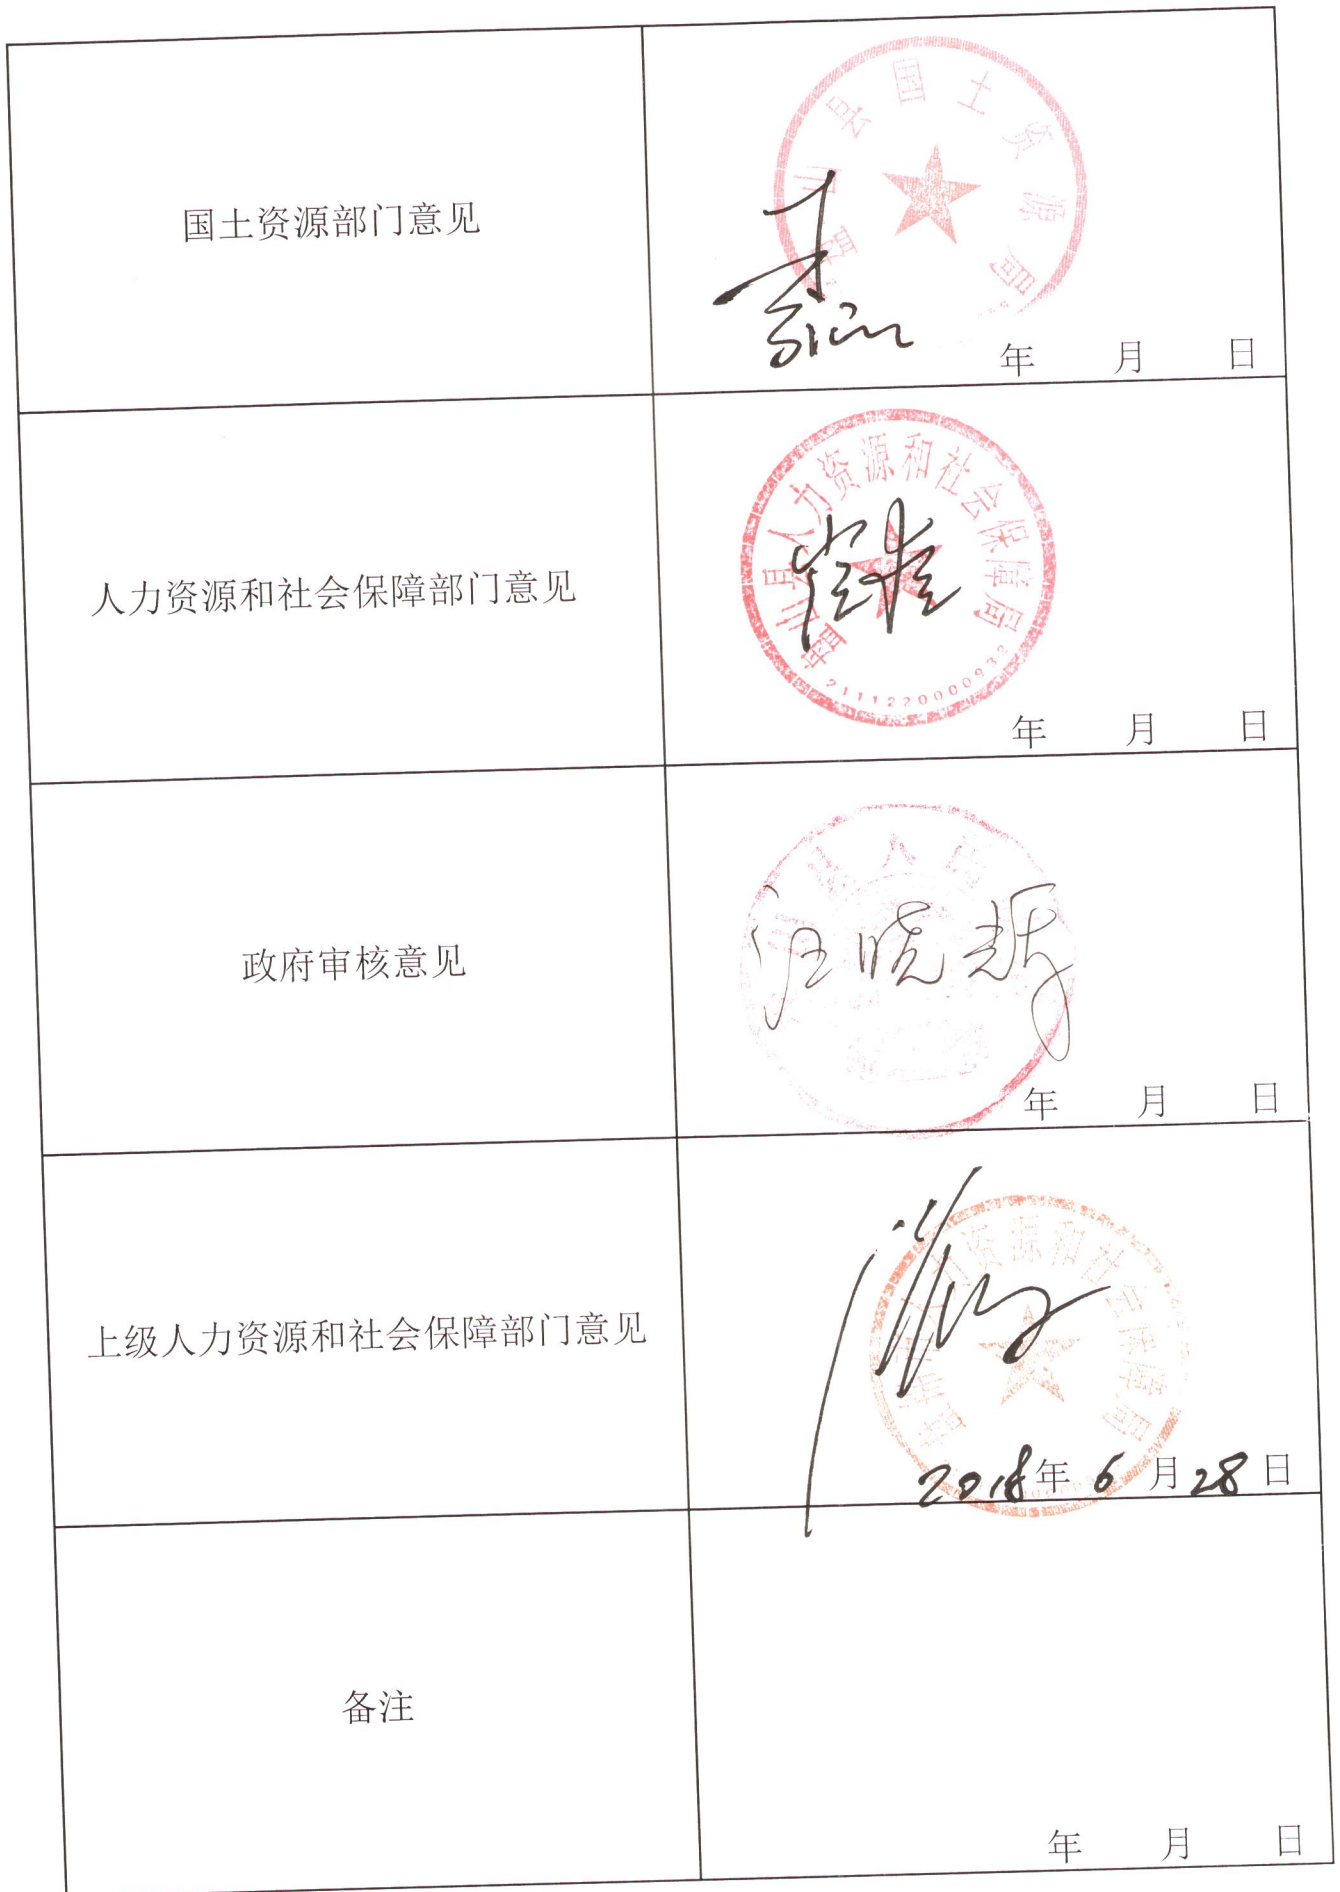 国土资源部门意见
山县国土资源局
年 月 日
人力资源和社会保障部门意见
盘山县人力资源和社会保障局
2111220000932
年 月 日
政府审核意见
县人民
汪晓辉
年 月 日
上级人力资源和社会保障部门意见
力资源和社会保障局
2018年 6 月 28 日
备注
年 月 日